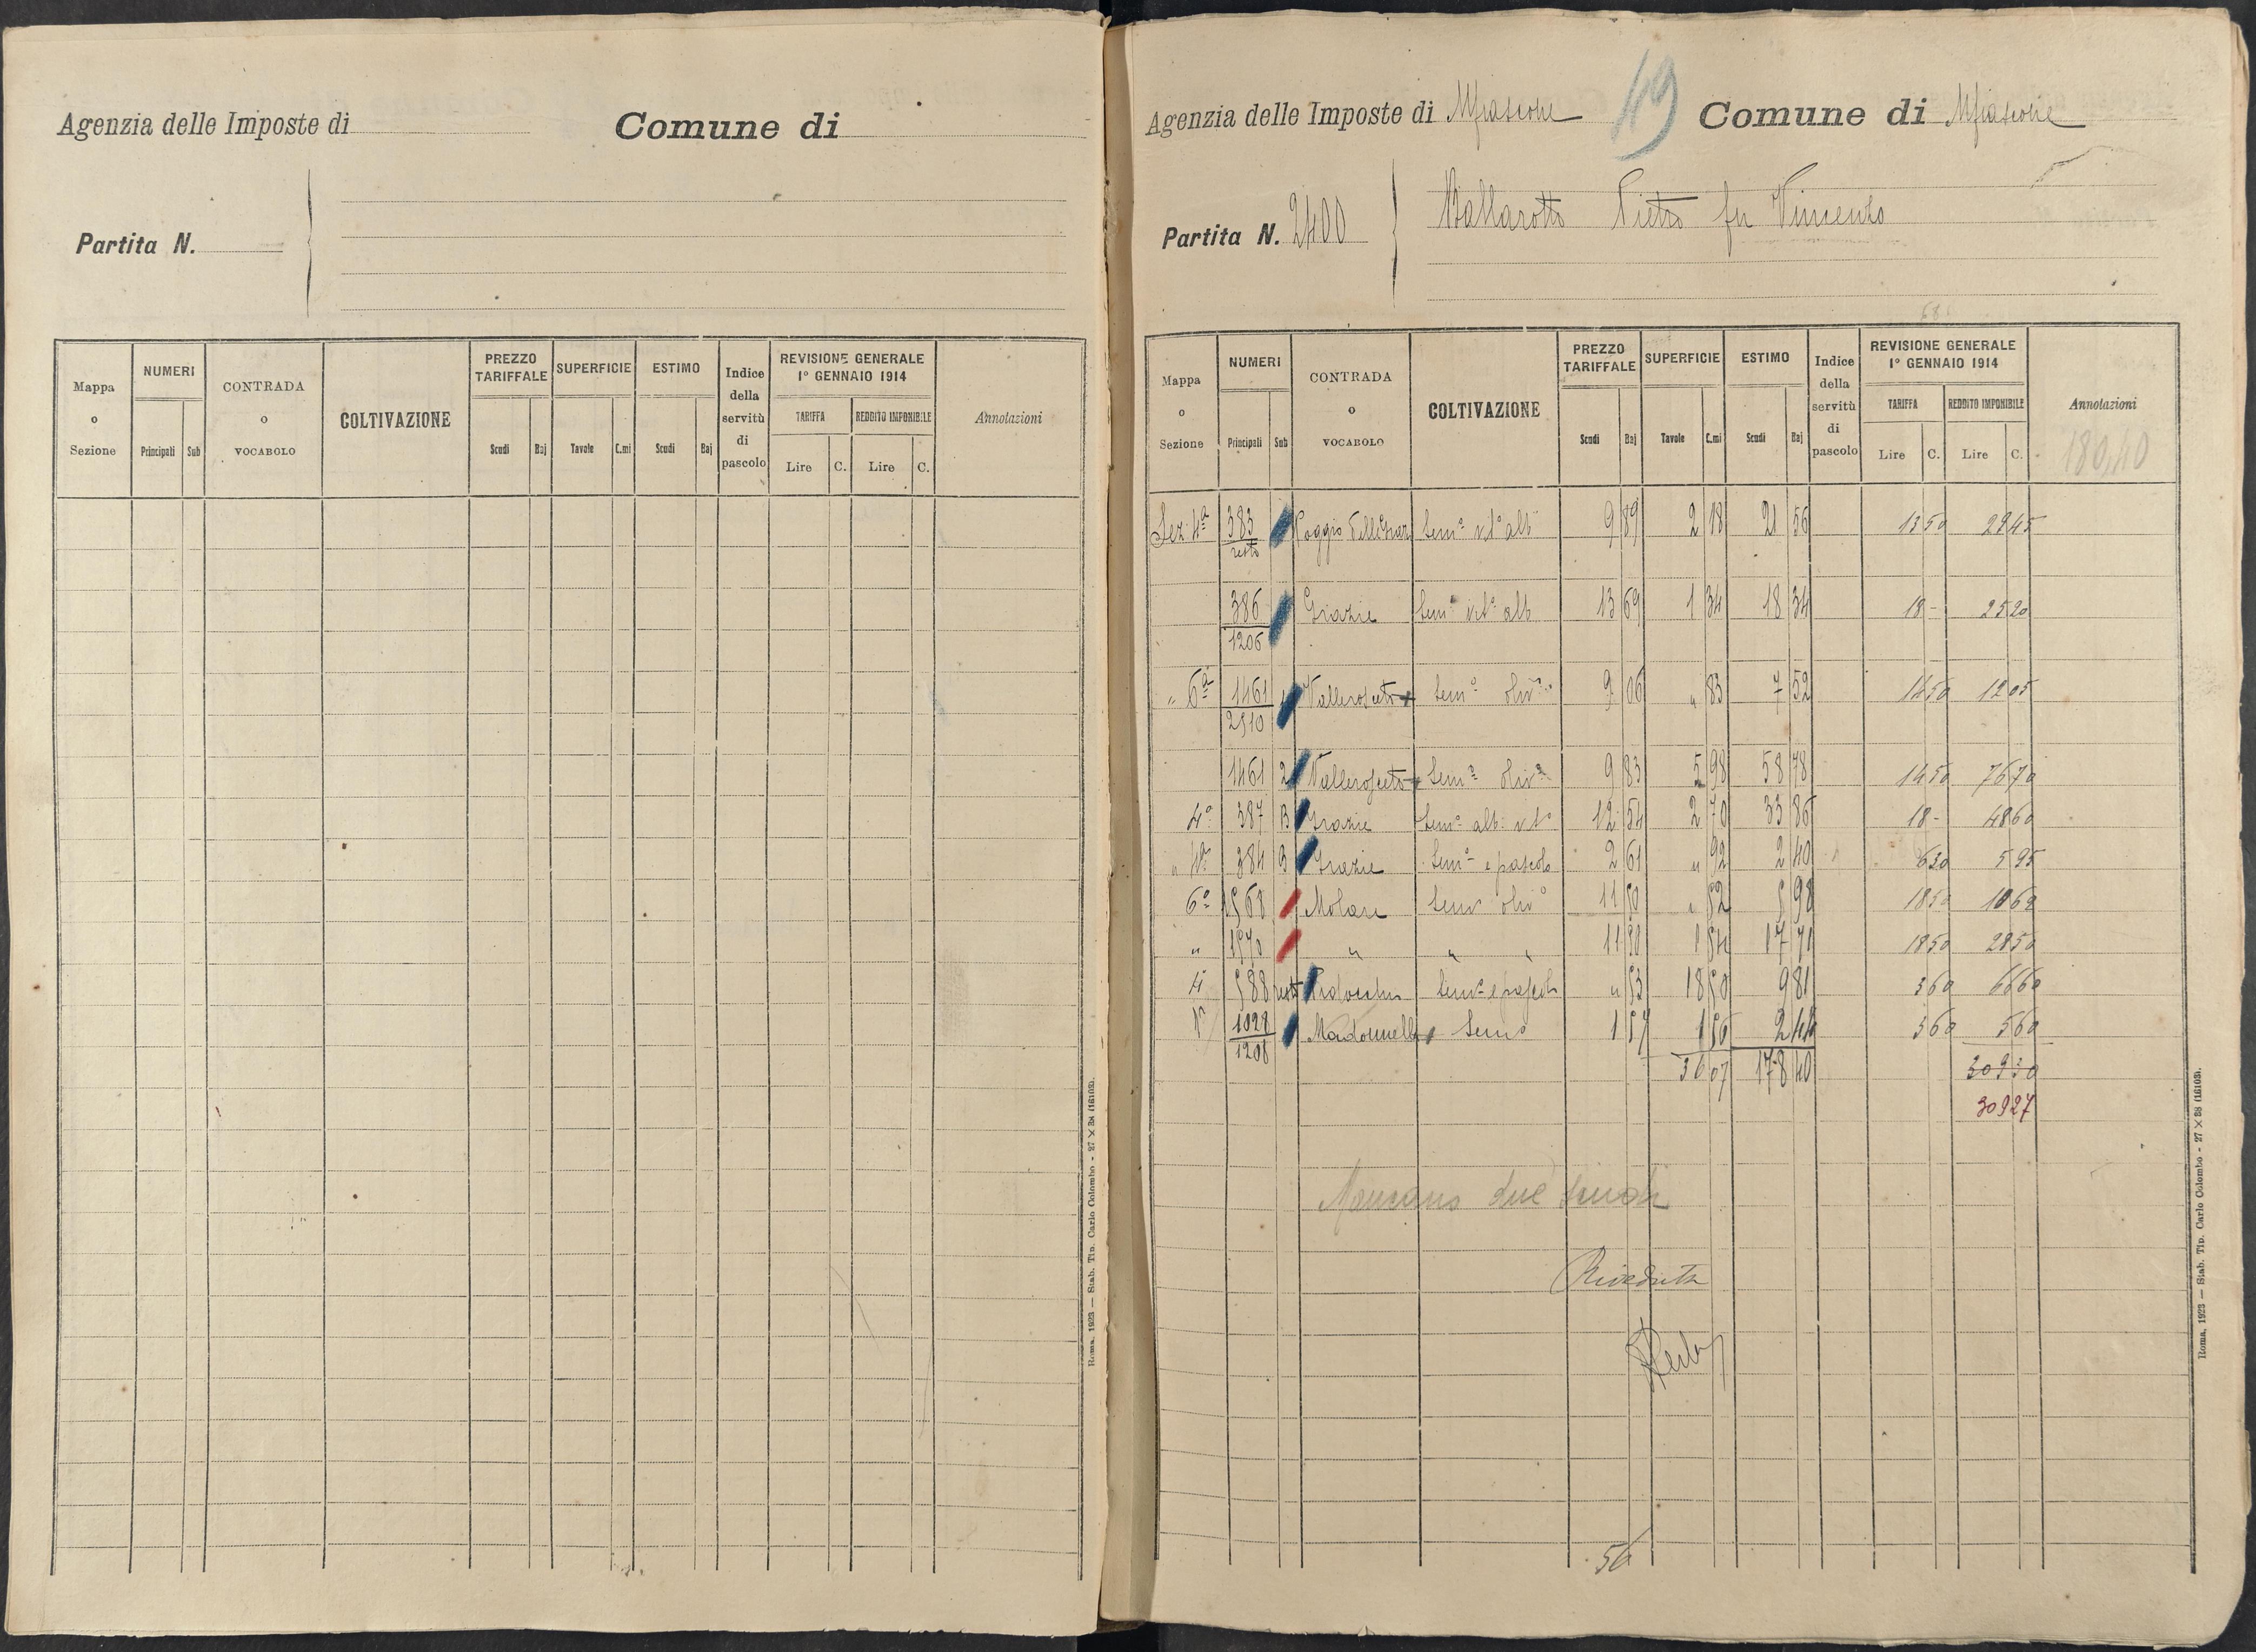 Agenzia delle Imposte di Comune di
Partita N.
Mappa o Sezione
NUMERI
Principali Sub
CONTRADA o VOCABOLO
COLTIVAZIONE
PREZZO TARIFFALE
Scudi Baj
SUPERFICIE
Tavole C.mi
ESTIMO
Scudi Baj
Indice della servitù di pascolo
REVISIONE GENERALE
1° GENNAIO 1914
TARIFFA REDDITO IMPONIBILE
Lire C. Lire C.
Annotazioni
Roma, 1923 — Stab. Tip. Carlo Colombo - 27 × 38 (16103).
Agenzia delle Imposte di Mfiascone 49 Comune di Mfiascone
Partita N. 2400
Ballarotto Pietro fu Vincenzo
Mappa o Sezione
NUMERI
Principali Sub
CONTRADA o VOCABOLO
COLTIVAZIONE
PREZZO TARIFFALE
Scudi Baj
SUPERFICIE
Tavole C.mi
ESTIMO
Scudi Baj
Indice della servitù di pascolo
REVISIONE GENERALE
1° GENNAIO 1914
TARIFFA REDDITO IMPONIBILE
Lire C. Lire C.
Annotazioni
180,40
Sez. 4ª 383/resto Poggio Semo vto alb 9 89 2 18 21 56 13 50 29 45
386/1206 Grazie Semo vto alb 13 69 1 34 18 34 18 - 25 20
" 6ª 1461/2510 Vallerosceto Semo olivo 9 06 " 83 7 52 14 50 12 05
1461 2 Vallerosceto Semo olivo 9 83 5 98 58 78 14 50 76 70
4ª 387 B Grazie Semo alb. vto 12 54 2 70 33 86 18 - 48 60
" 4ª 384 B Grazie Semo e pascolo 2 61 " 92 2 40 6 30 5 95
6ª 1568 Molare Semo olivo 11 50 " 52 5 98 18 50 10 62
" 1570 " " " 11 50 1 54 17 71 18 50 28 50
4 588 resto Semo e pascolo " 53 18 50 9 81 3 60 66 60
1028/1206 Madonnella Semo 1 57 1 56 2 44 3 60 5 60
36 07 178 40 309 30
309 27
Mancano due scudi
Riveduta
56
Roma, 1923 — Stab. Tip. Carlo Colombo - 27 × 38 (16103).